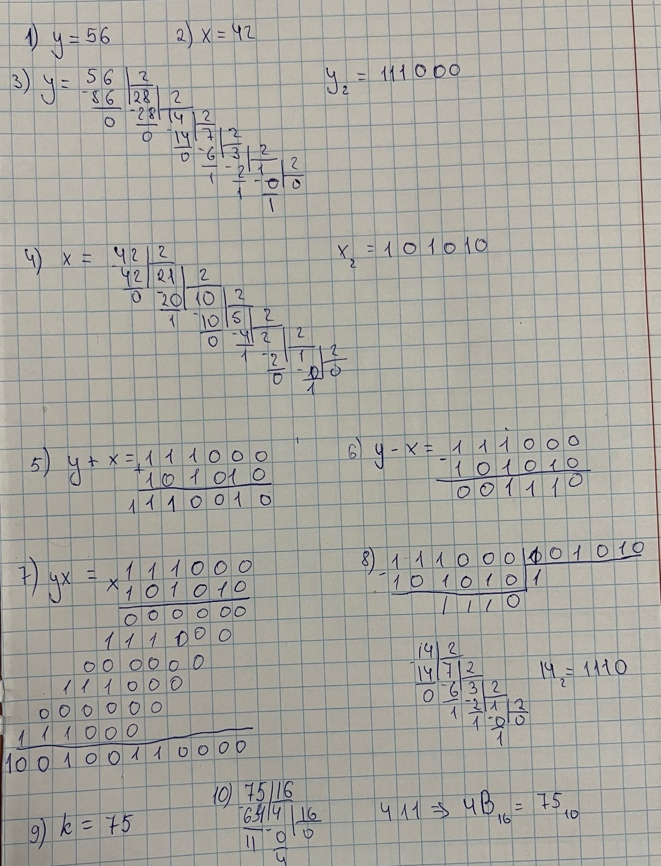 1) y = 56 2) x = 42
3) y = 56 | 2 y₂ = 111000
-56 | 28 | 2
0 -28 | 14 | 2
0 -14 | 7 | 2
0 -6 | 3 | 2
1 -2 | 1 | 2
1 -0 | 0
1
4) x = 42 | 2 x₂ = 101010
-42 | 21 | 2
0 -20 | 10 | 2
1 -10 | 5 | 2
0 -4 | 2 | 2
1 -2 | 1 | 2
0 -0 | 0
1
5) y + x = 111000
+ 101010
1110010
6) y - x = 111000
- 101010
001110
7) yx = 111000
x 101010
000000
111000
000000
111000
000000
111000
100100110000
8) 111000 | 101010
- 101010 | 1
1110
14 | 2 14₂ = 1110
-14 | 7 | 2
0 -6 | 3 | 2
1 -2 | 1 | 2
1 -0 | 0
1
9) k = 75
10) 75 | 16
-64 | 4 | 16 4 11 ⇒ 4B₁₆ = 75₁₀
11 -0 | 0
4